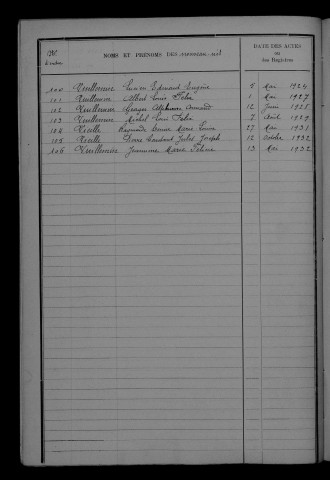 NOMS ET PRÉNOMS DES
DATE DES ACTES
ou
des Registres
100 Vuillemin Lucien Edmond Eugène 5 Mai 1924
101 Vuillemin Albert Louis Félix 1 Mai 1927
102 Vuillemin Georges Alphonse Armand 12 Juin 1928
103 Vuillemin Michel Louis Félix 7 Août 1929
104 Vieille Raymonde Marie Louise 27 Mai 1931
105 Vieille Pierre Jules Joseph 12 Octobre 1932
106 Vuillemin Jeannine Marie 13 Mai 1932